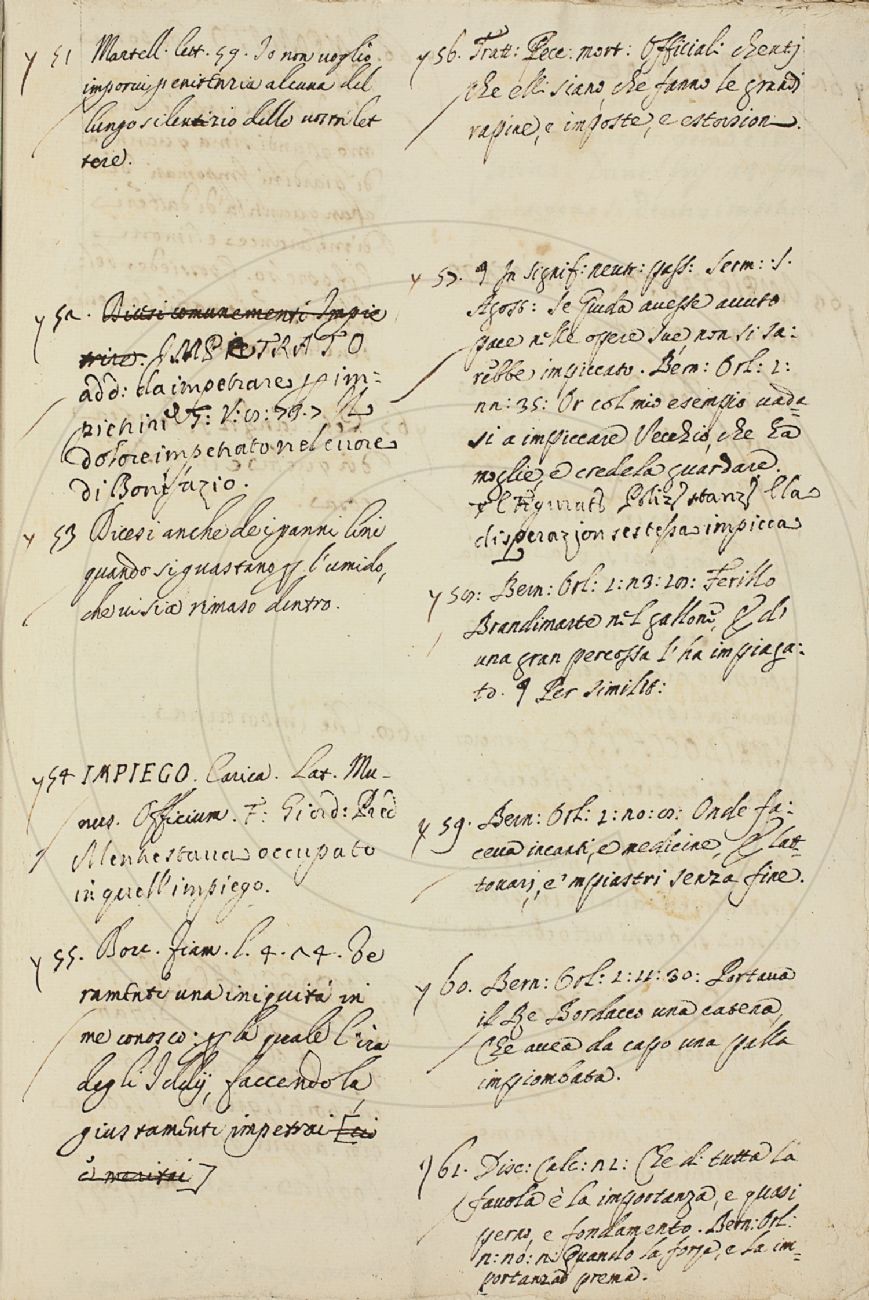 51 Martell. lett. 59. Io non voglio
imporvi penitenzia alcuna del
lungo silenzio delle vostre let
tere.
52. Dicesi comunemente Impie
IMPETRATO
add: da impetrare
dolore impetrato nel cuore
di Bonifazio.
53 Dicesi anche dei panni lini
quando si guastano p. l'umido,
che vi sia rimaso dentro.
54 IMPIEGO. Carica. Lat. Mu-
nus. Officium. F: Giord: Pred
Mentre stava occupato
in quell'impiego.
55. Bocc. fiam. l. 4. 24. Ve
ramente una iniquità in
me conosco: p la quale l'ira
degli Iddij, faccendola
giustamente impetrai [cio
è meritai]
56. Tratt: Pecc: mort: Officiali chenti
che elli siano, che fanno le grandi
rapine, e imposte, e estorsioni.
57. ¶ In signif: neutr: pass: Serm: S.
Agost: Se Giuda avesse avuto
pace nelle opere sue, non si sa:
rebbe impiccato. Bern: Orl: 2:
22: 35: Or col mio esempio vada
si a impiccare Vecchio, che ha
moglie, e credela guardare.
Poliz stanz Ella
disperazion se stessa impicca
58: Bern: Orl: 1: 23: 28: Ferillo
Brandimarte nel gallone, & di
una gran percossa l'ha impiaga:
to. ¶ Per similit:
59. Bern: Orl: 1: 20: 8: Onde fa:
ceva incanti, e medicine, & lat
tovarj, e 'mpiastri senza fine.
60. Bern: Orl: 1: 11: 30: Portava
il Re Bordacco una catena,
Che avea da capo una palla
impiombata.
61. Disc: Calc: 21: Che di tutta la
favola è la importanza, e quasi
perno, e fondamento. Bern: Orl:
2: 20: 2. Quando la forza, e la im-
portanza prema.